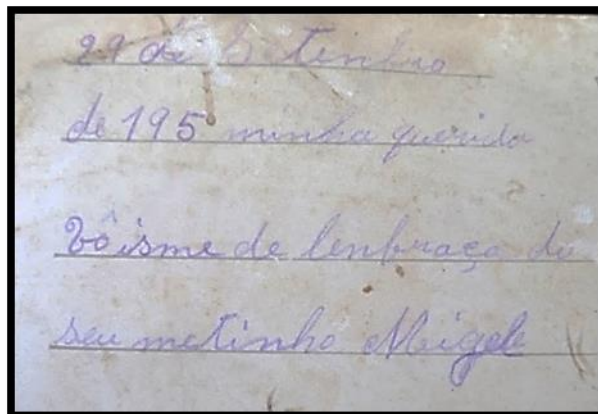 29 de Setenbro
de 195 minha querida
Vóisme de lenbraça du
seu metinho Migele